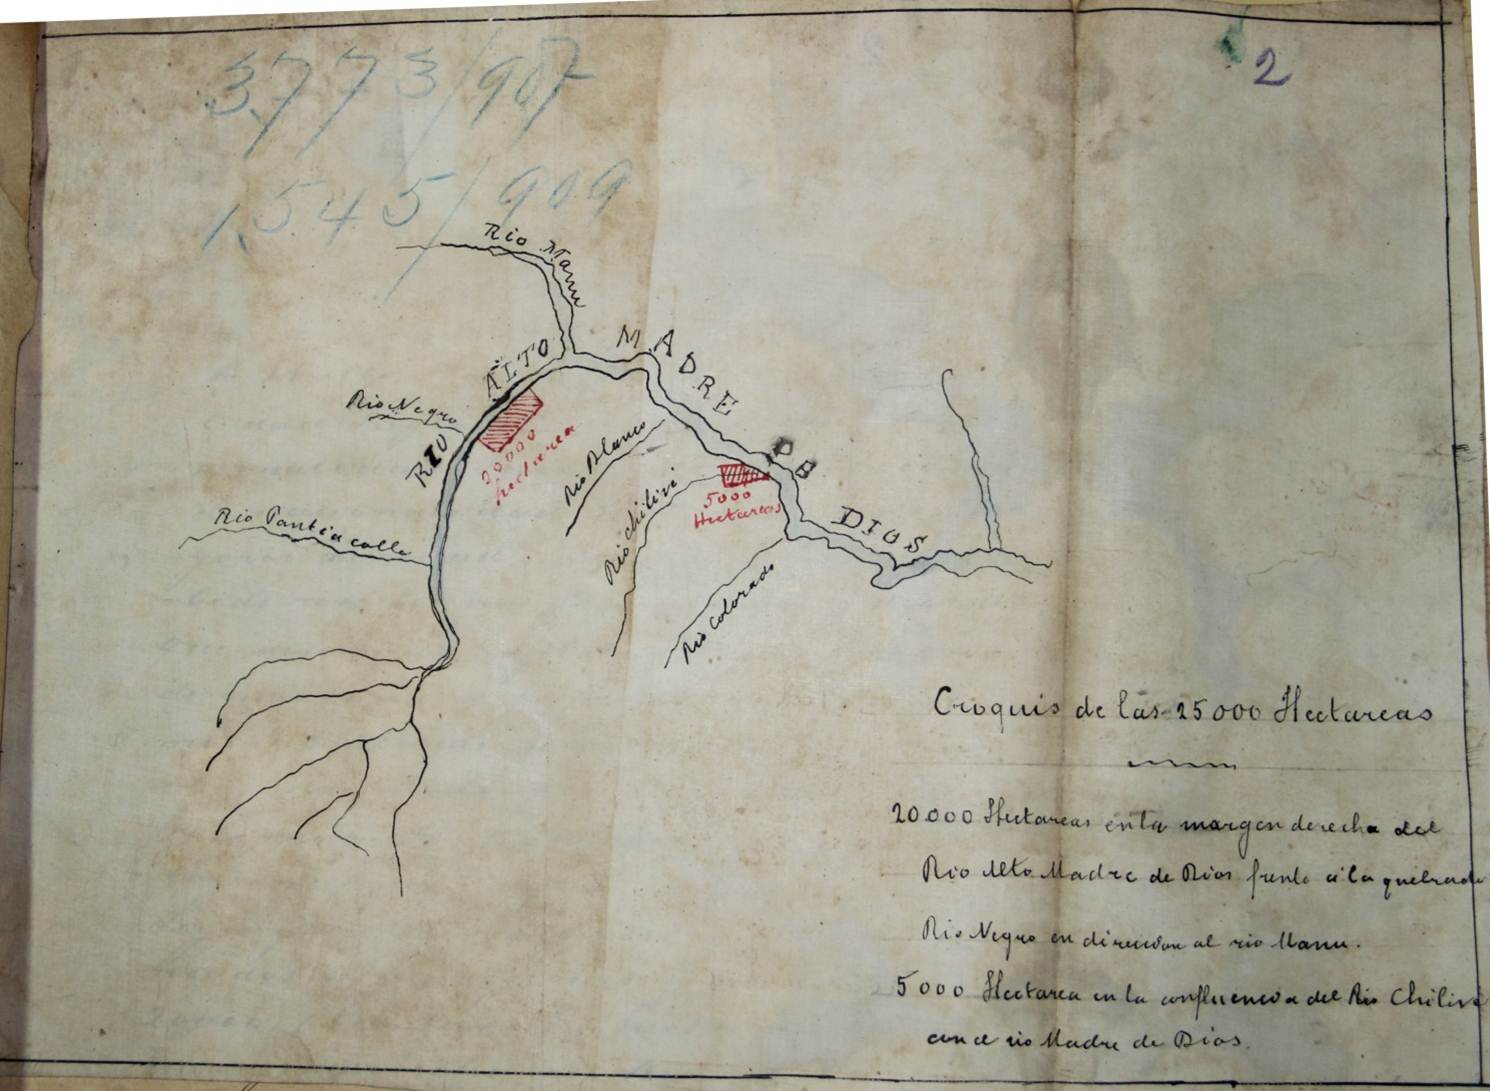 3773/907
2
1.545/909
Rio Manu
RIO ALTO MADRE DE DIOS
Rio Negro
20000
hectarea
Rio Blanco
Rio Chilivi
5000
Hectareas
Rio Pantiacolla
Rio Colorado
Croquis de las 25000 Hectareas
20.000 Hectareas en la margen derecha del
Rio Alto Madre de Dios frente á la quebrada
Rio Negro en direccion al rio Manu.
5000 Hectarea en la confluencia del Rio Chilivi
con el rio Madre de Dios.